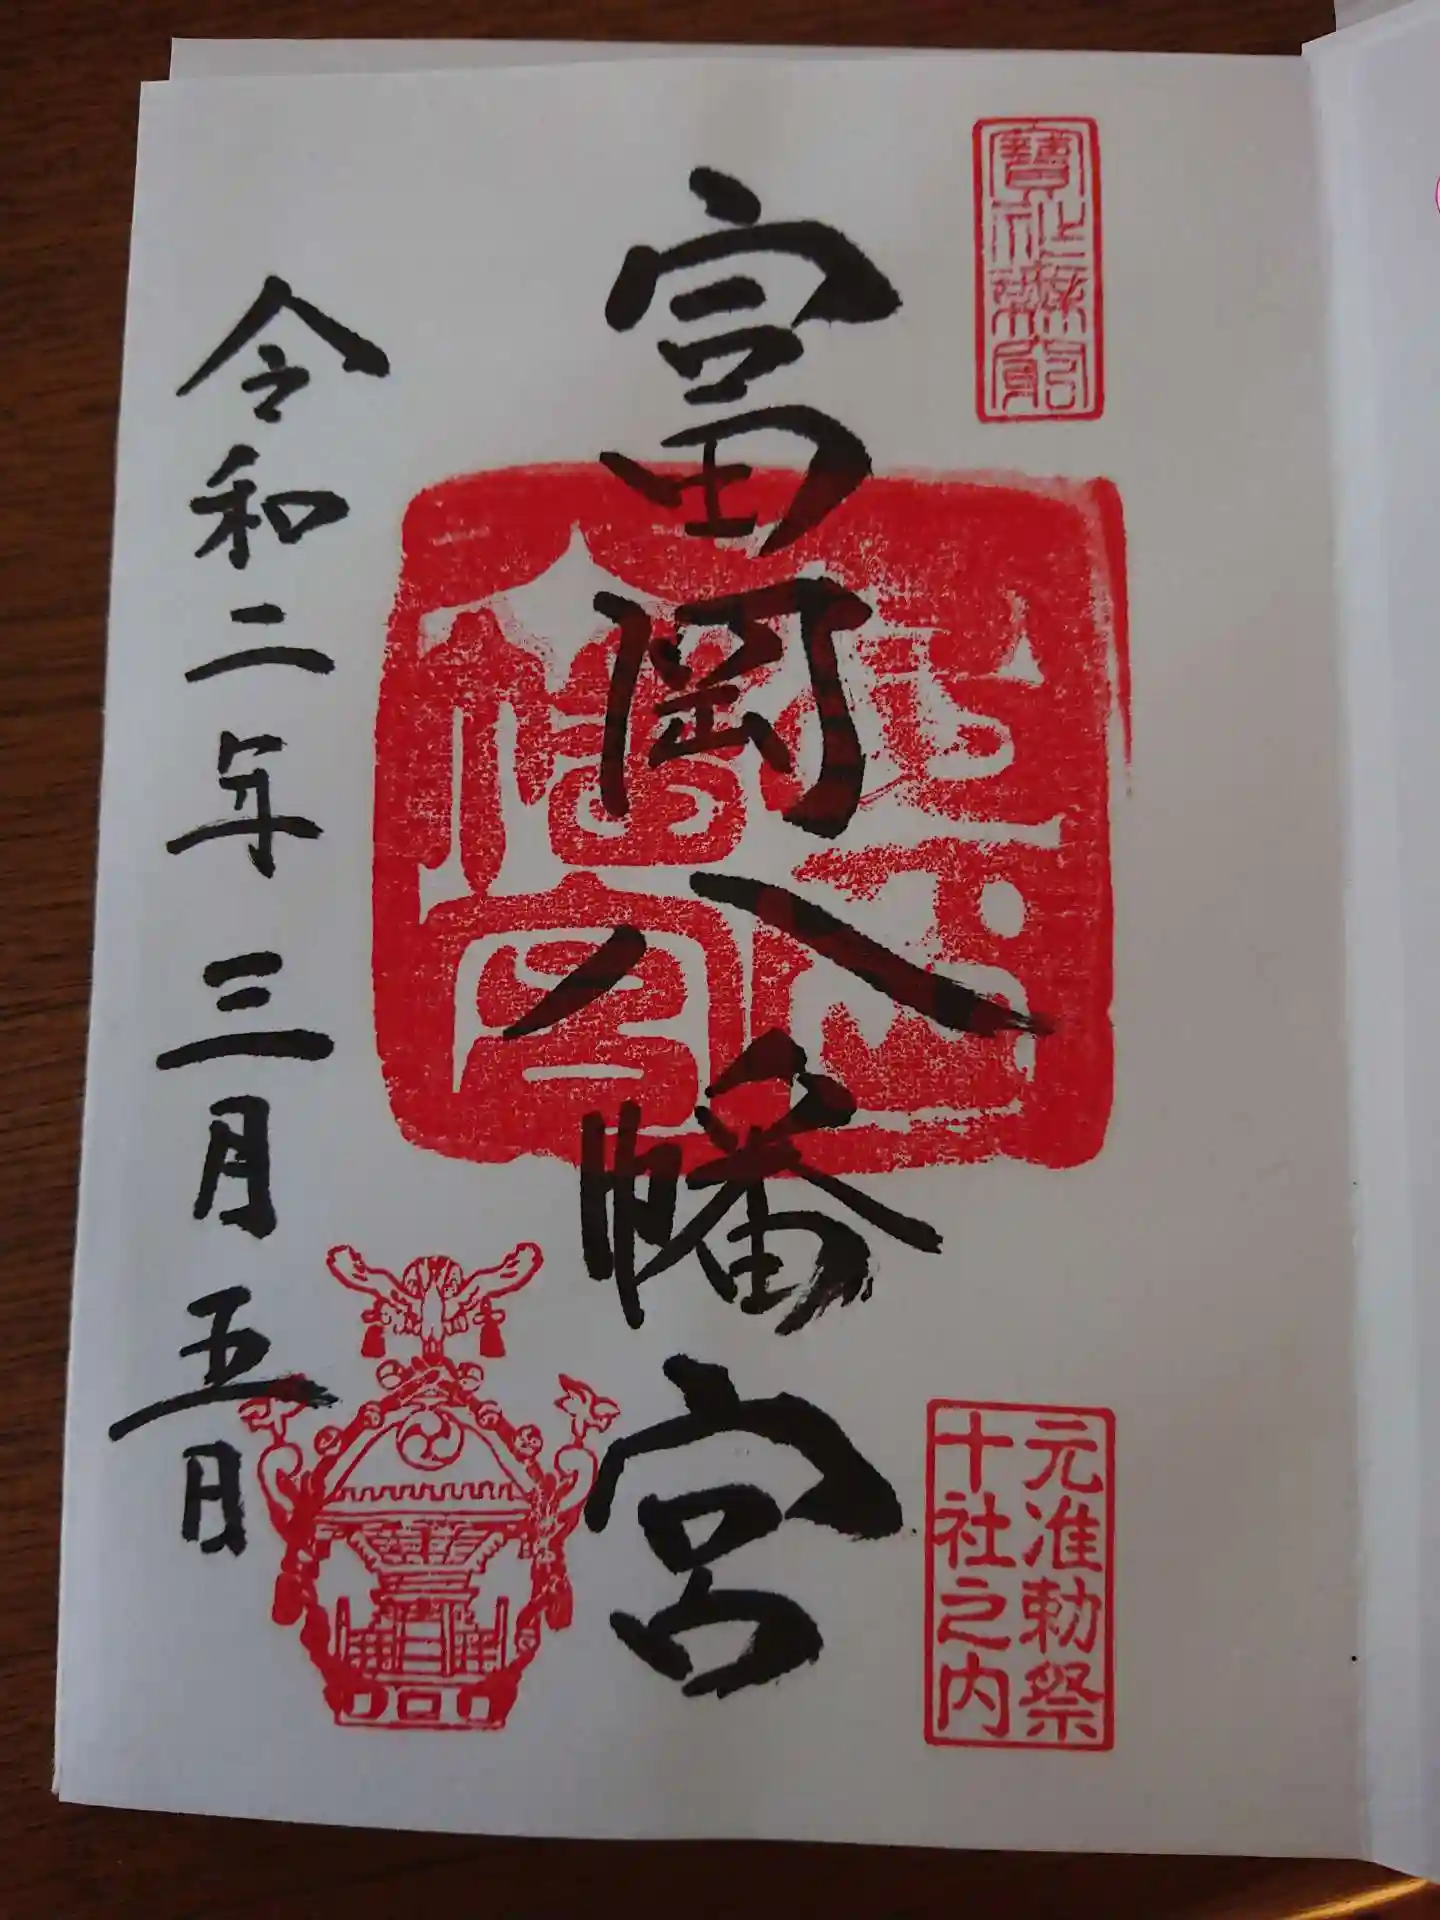 寶祚無窮
元准勅祭
十社之内
富岡八幡宮
令和二年三月五日